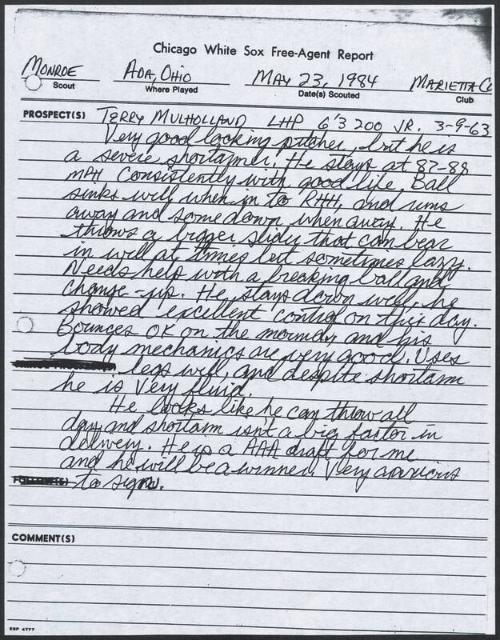 Chicago White Sox Free-Agent Report
MONROE ADA, OHIO MAY 23, 1984 MARIETTA CO
Scout Where Played Date(s) Scouted Club
PROSPECT(S) TERRY MULHOLLAND LHP 6'3 200 JR. 3-9-63
Very good looking pitcher, but he is
a severe shortarmer. He stays at 87-88
MPH consistently with good life. Ball
sinks well when in to RHH, and runs
away and some down when away. He
throws a bigger slider that can bear
in well at times but sometimes lazy.
Needs help with a breaking ball and
change-up. He stays down well. he
showed excellent control on this day.
Bounces OK on the mornday and his
body mechanics are very good. Uses
legs well, and despite shortarm
he is very fluid.
He looks like he can throw all
day and shortarm isn't a big factor in
delivery. He is a AAA draft for me
and he will be a winner. Very anxious
to sign.
COMMENT(S)